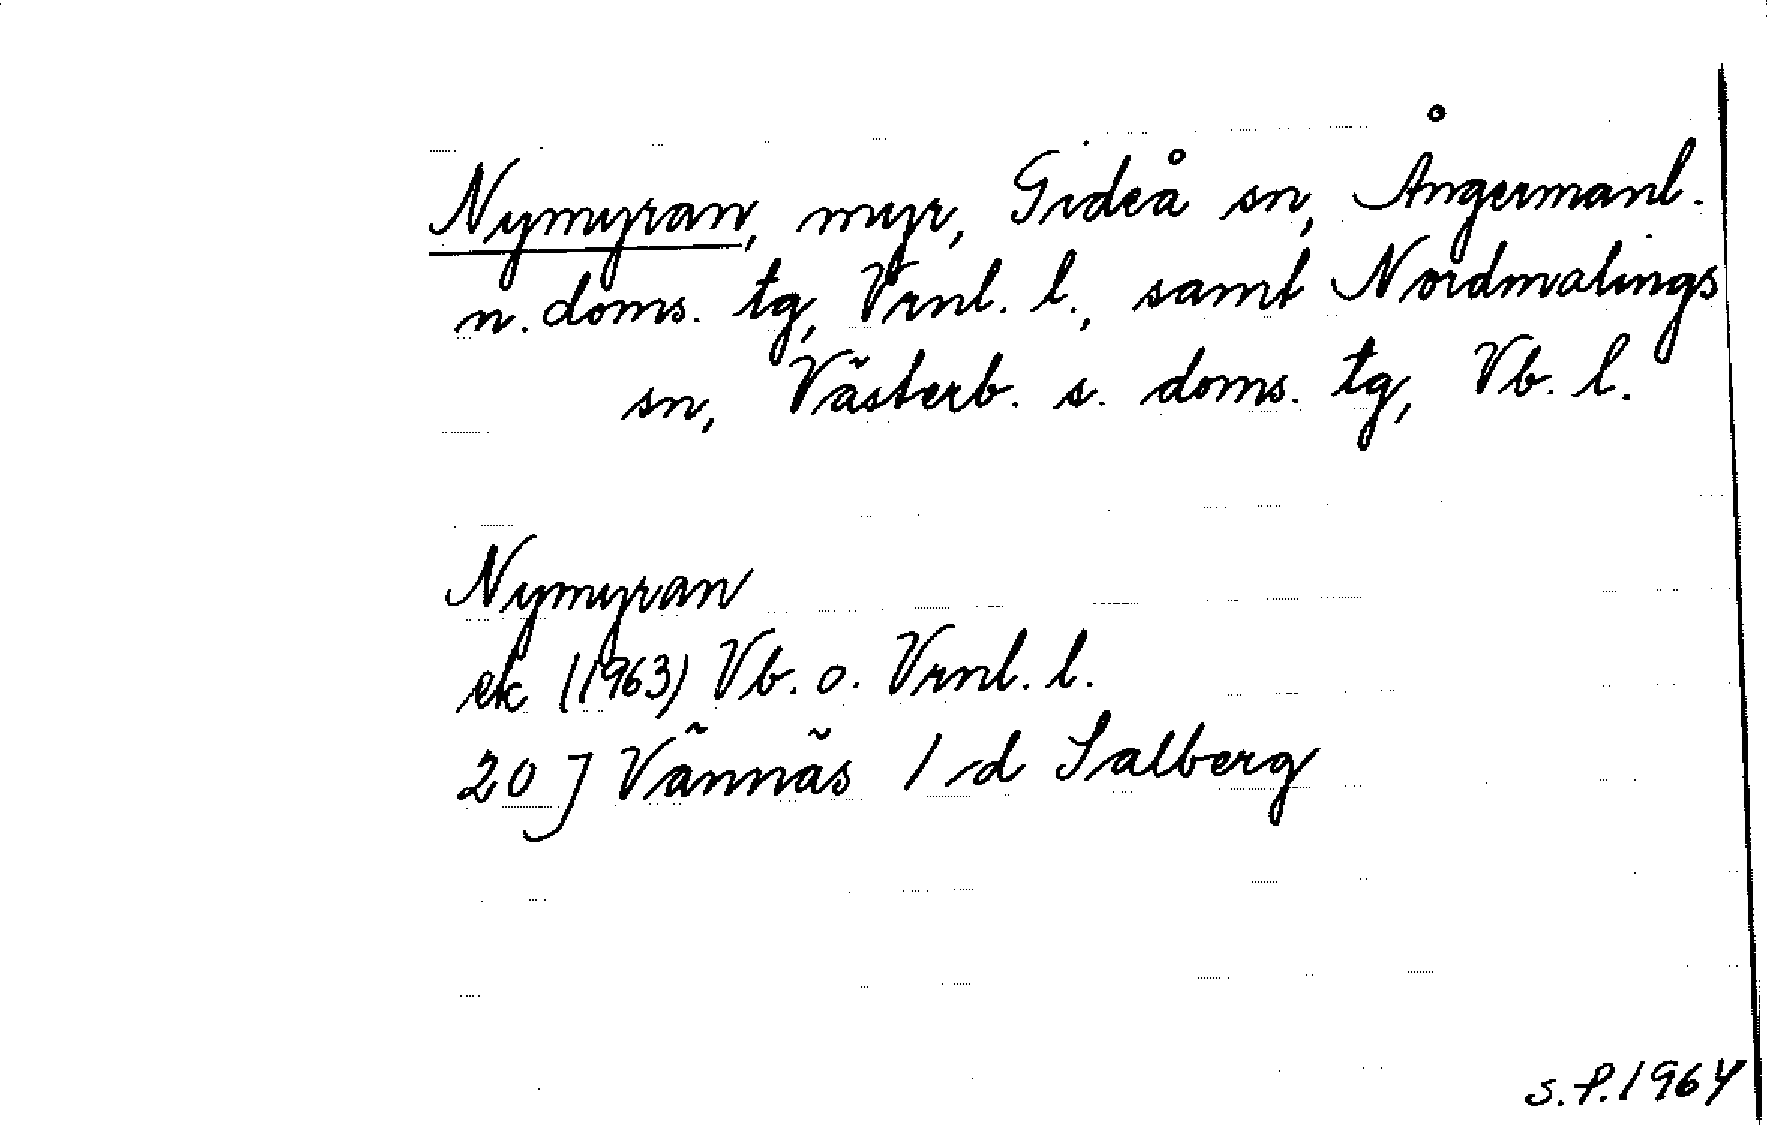 Nymyran, myr, Gideå sn, Ångermanl.
n. doms. tg, Vrnl. l., samt Nordmalings
sn, Västerb. s. doms. tg, Vb. l.
Nymyran
ek (1963) Vb. o. Vrnl. l.
20 J Vännäs 1 d Salberg
S.P. 1964